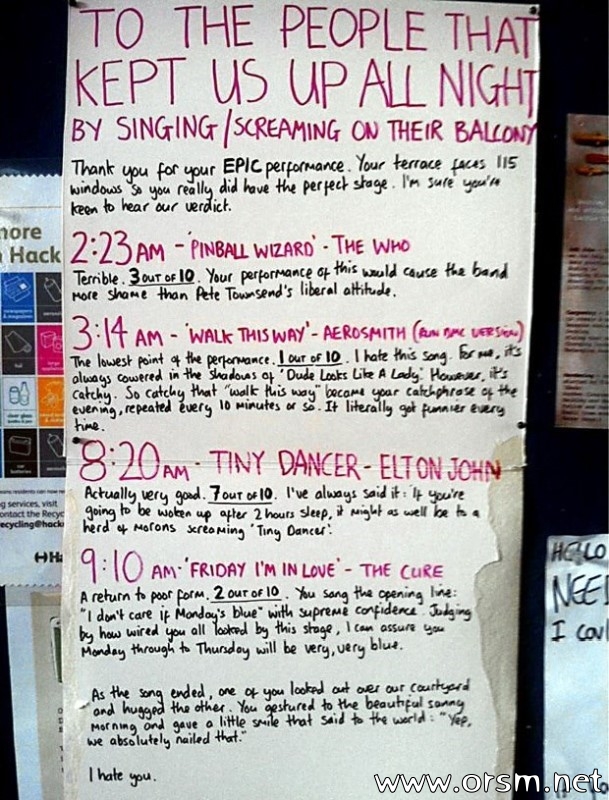 TO THE PEOPLE THAT
KEPT US UP ALL NIGHT
BY SINGING/SCREAMING ON THEIR BALCONY
Thank you for your EPIC performance. Your terrace faces 115
windows so you really did have the perfect stage. I'm sure you're
keen to hear our verdict.
2:23AM - 'PINBALL WIZARD' - THE WHO
Terrible. 3 OUT OF 10. Your performance of this would cause the band
more shame than Pete Townsend's liberal attitude.
3:14 AM - 'WALK THIS WAY' - AEROSMITH (RUN DMC VERSION)
The lowest point of the performance. 1 OUT OF 10. I hate this song. For me, it's
always cowered in the shadows of 'Dude Looks Like A Lady'. However, it's
catchy. So catchy that "walk this way" became your catchphrase of the
evening, repeated every 10 minutes or so. It literally got funnier every
time.
8:20AM - TINY DANCER - ELTON JOHN
Actually very good. 7 OUT OF 10. I've always said it: If you're
going to be woken up after 2 hours sleep, it might as well be to a
herd of morons screaming 'Tiny Dancer'.
9:10 AM - 'FRIDAY I'M IN LOVE' - THE CURE
A return to poor form. 2 OUT OF 10. You sang the opening line:
"I don't care if Monday's blue" with supreme confidence. Judging
by how wired you all looked by this stage, I can assure you
Monday through to Thursday will be very, very blue.
As the song ended, one of you looked out over our courtyard
and hugged the other. You gestured to the beautiful sunny
morning and gave a little smile that said to the world: "Yep,
we absolutely nailed that."
I hate you.
more
Hack
ng services, visit
ontact the Recyc
ecycling@hack
Ha
HELLO
NEE
I coul
www.orsm.net